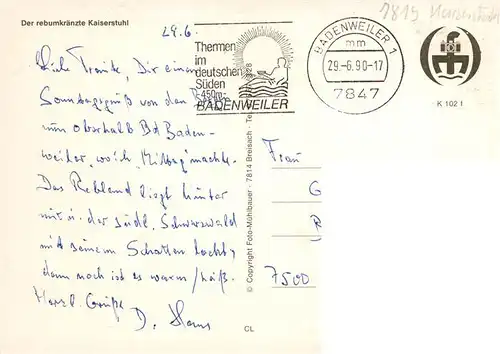 Der rebumkränzte Kaiserstuhl
29.6.
Thermen
im
deutschen
Süden
-450m-
BADENWEILER
BADENWEILER 1
mm
29.-6.90-17
7847
7815 Kaiserstuhl
K 102 I
Liebe Dir einen
Sonntagsgruß von der
oberhalb Bd Baden-
weiler, wo ich Mittag mache.
Das Rebland liegt hinter
mir u. der südl. Schwarzwald
mit seinem Schatten lockt,
denn noch ist es warm / heiß.
Herzl. Grüße
D. Hans
© Copyright Foto-Mühlbauer · 7814 Breisach · Te
328
Frau
G
R
7500
CL